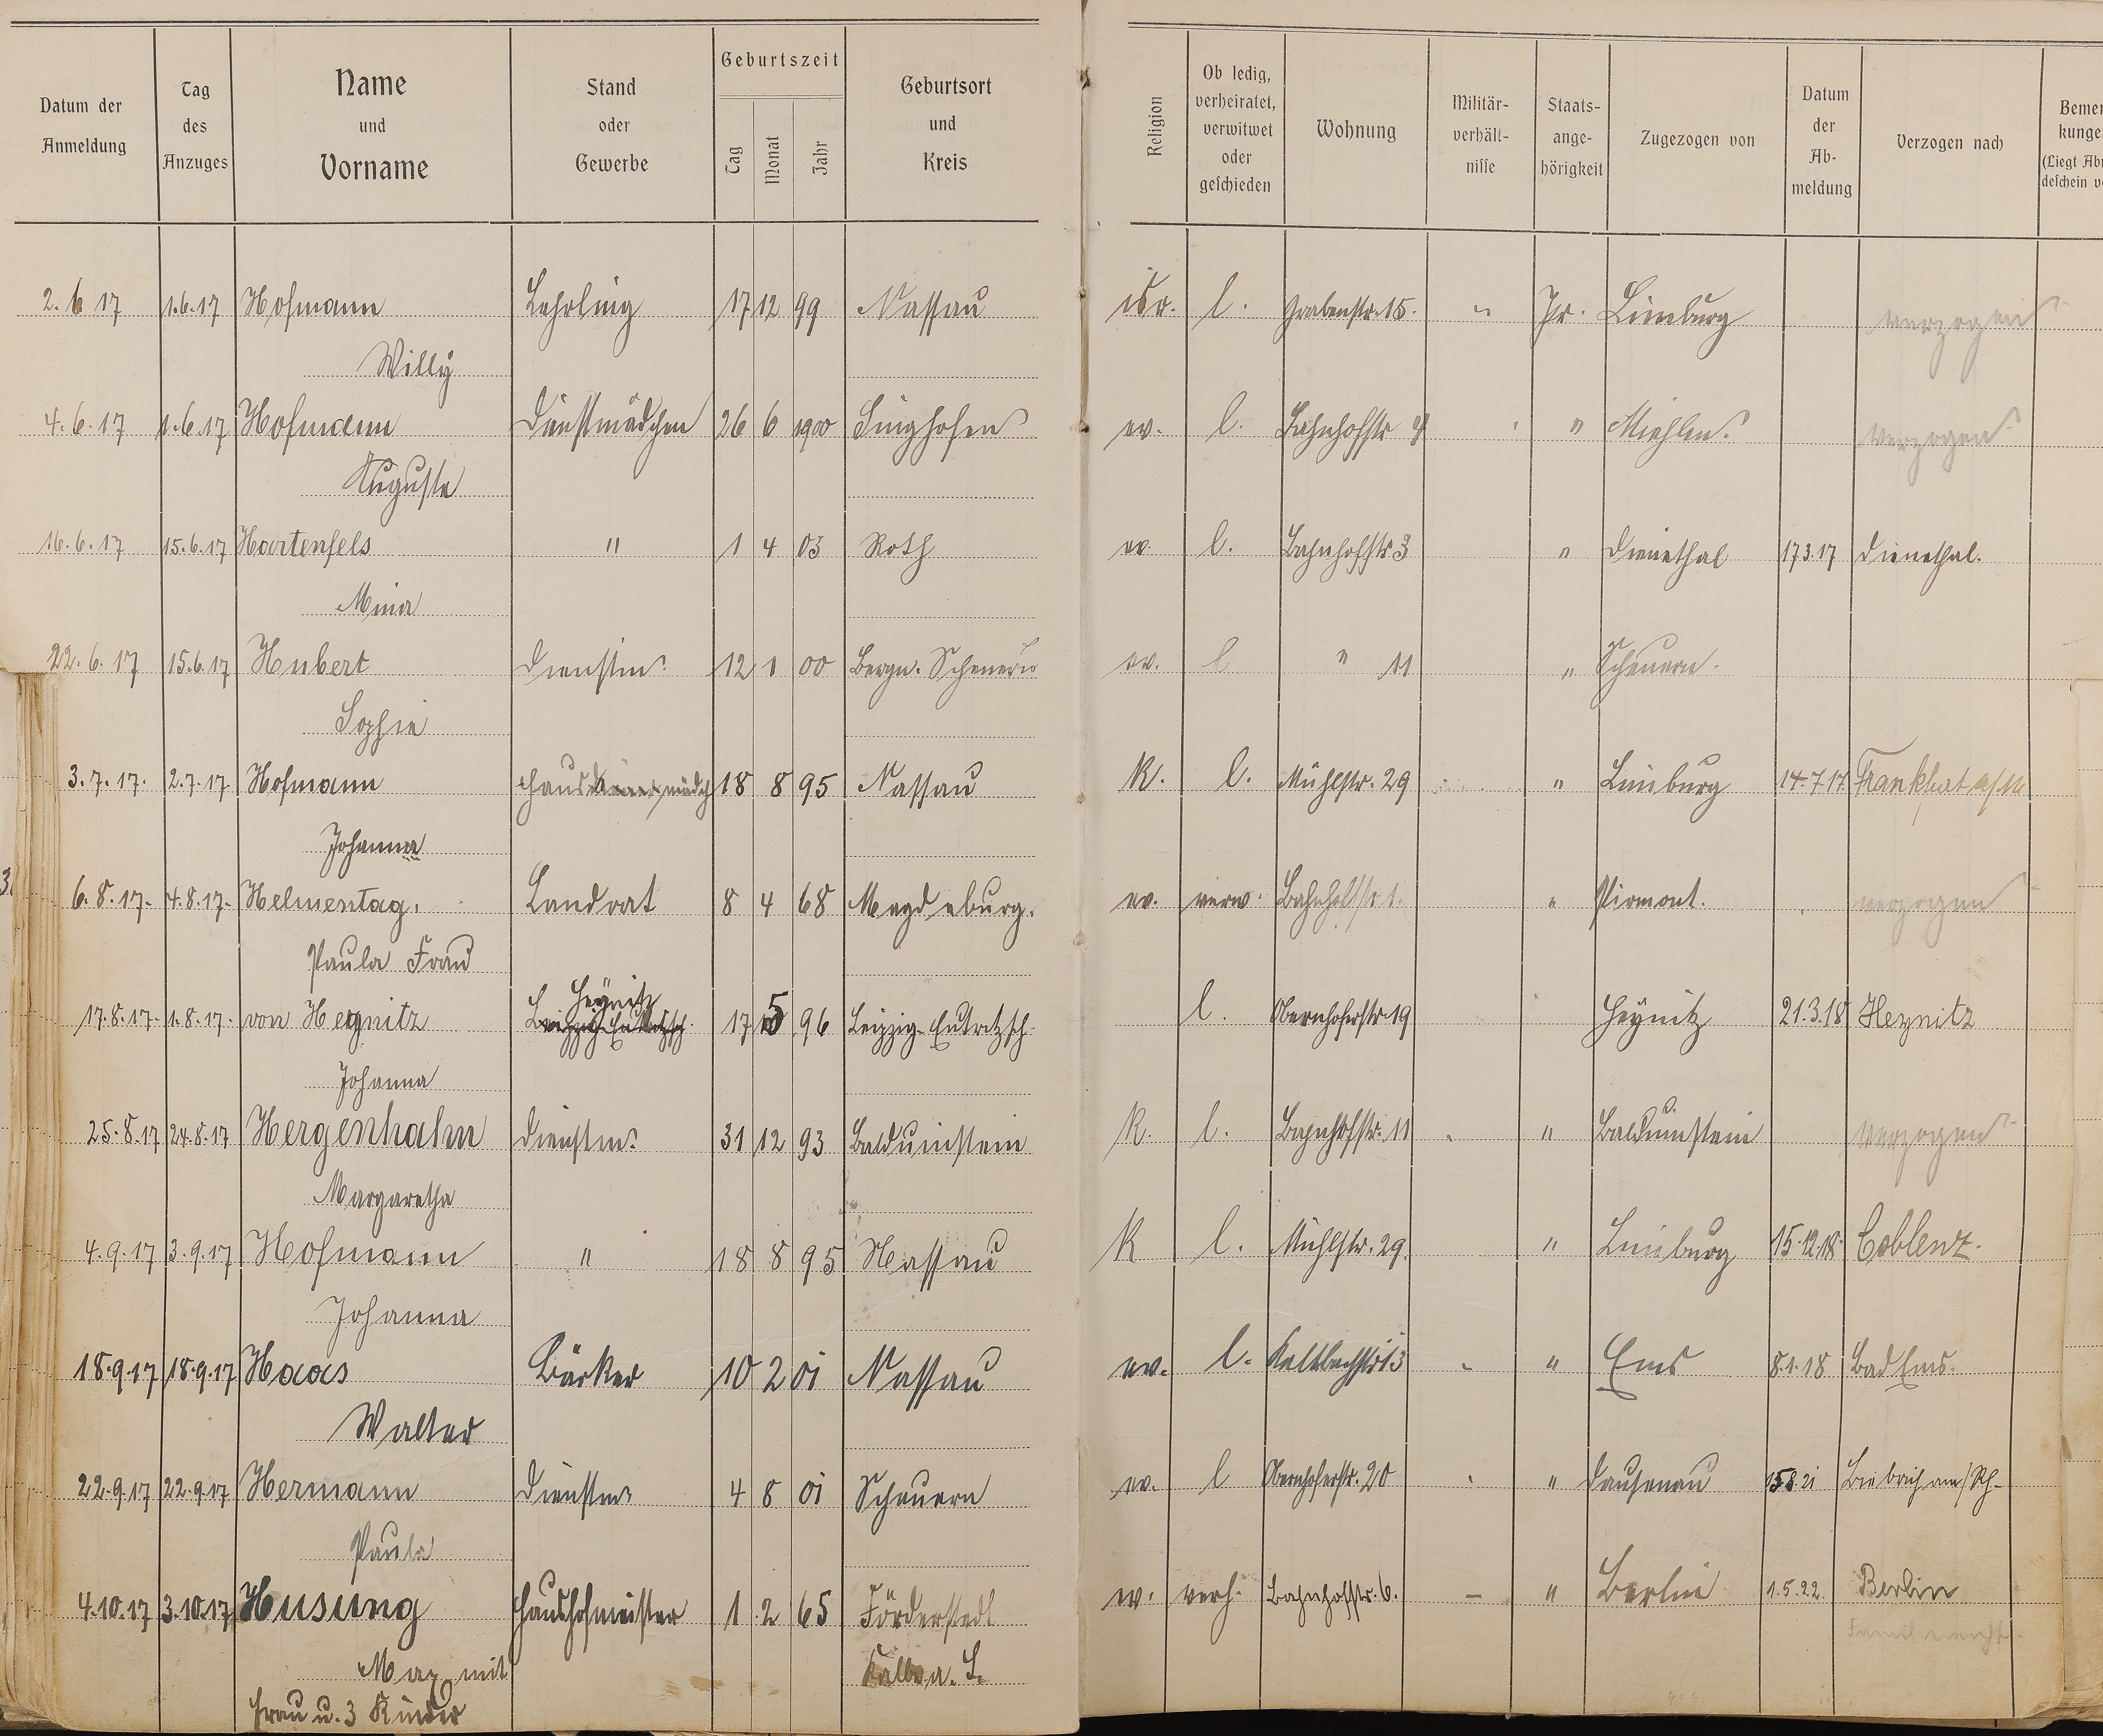 Datum der Anmeldung | Tag des Anzuges | Name und Vorname | Stand oder Gewerbe | Geburtszeit Tag Monat Jahr | Geburtsort und Kreis | Religion | Ob ledig, verheiratet, verwitwet oder geschieden | Wohnung | Militär-verhält-nisse | Staats-ange-hörigkeit | Zugezogen von | Datum der Ab-meldung | Verzogen nach | Bemer kunge (Liegt Ab deschein v
2.6 17 | 1.6.17 | Hofmann | Lehrling | 17 12 99 | Nassau | isr. | l. | Grabenstr. 15. | " | Pr. | Limburg | verzogen
Willy
4.6.17 | 1.6.17 | Hofmann | Dienstmädchen | 26 6 1900 | Singhofen | ev. | l. | Bahnhofstr | " | Miehlen | verzogen
Auguste
16.6.17 | 15.6.17 | Hartenfels | " | 1 4 03 | Roth | ev. | l. | Bahnhofstr 3 | " | Dienethal | 17.3.17 | Dienethal.
Mina
22.6.17 | 15.6.17 | Hubert | Dienstm. | 12 1 00 | Bergn. Scheuern | ev. | l | " 11 | " | Scheuern.
Sophie
3.7.17. | 2.7.17 | Hofmann | Haus mädch | 18 8 95 | Nassau | K. | l. | Mühlstr. 29 | " | Limburg | 14.7.17. | Frankfurt a/M
Johanna
6.8.17. | 4.8.17. | Helmentag, | Landrat | 8 4 68 | Magdeburg. | ev. | verw. | Bahnhofstr 1. | " | Pirmont. | verzogen
Paula Frau
Heÿnitz
17.8.17. | 1.8.17. | von Heynitz | Leipzig-Eutritzsch. | 17 5 96 | Leipzig-Eutritzsch | l. | Obernhoferstr. 19 | Heÿnitz | 21.3.18 | Heynitz
Johanna
25.8.17 | 24.8.17 | Hergenhahn | Dienstm. | 31 12 93 | Balduinstein | K. | l. | Bahnhofstr. 11 | " | Balduinstein | verzogen
Margaretha
4.9.17 | 3.9.17 | Hofmann | " | 18 8 95 | Nassau | K | l. | Mühlstr. 29. | " | Limburg | 15.12.18. | Coblenz.
Johanna
18.9.17 | 18.9.17 | Haas | Bäcker | 10 2 01 | Nassau | ev. | l. | Kaltbachstr 13 | " | Ems | 8.1.18 | Bad Ems.
Walter
22.9.17 | 22.9.17 | Hermann | Dienstm. | 4 8 01 | Scheuern | ev. | l | Obernhoferstr. 20 | " | Dausenau | 15.8.21 | Biebrich am/Rh.
Paula
4.10.17 | 3.10.17 | Husung | Haushofmeister | 1 2 65 | Förderstedt | ev. | verh. | Bahnhofstr. 6. | – | " | Berlin | 1.5.22. | Berlin
Familie nicht.
Max mit | Kalbe a. S.
Frau u. 3 Kinder